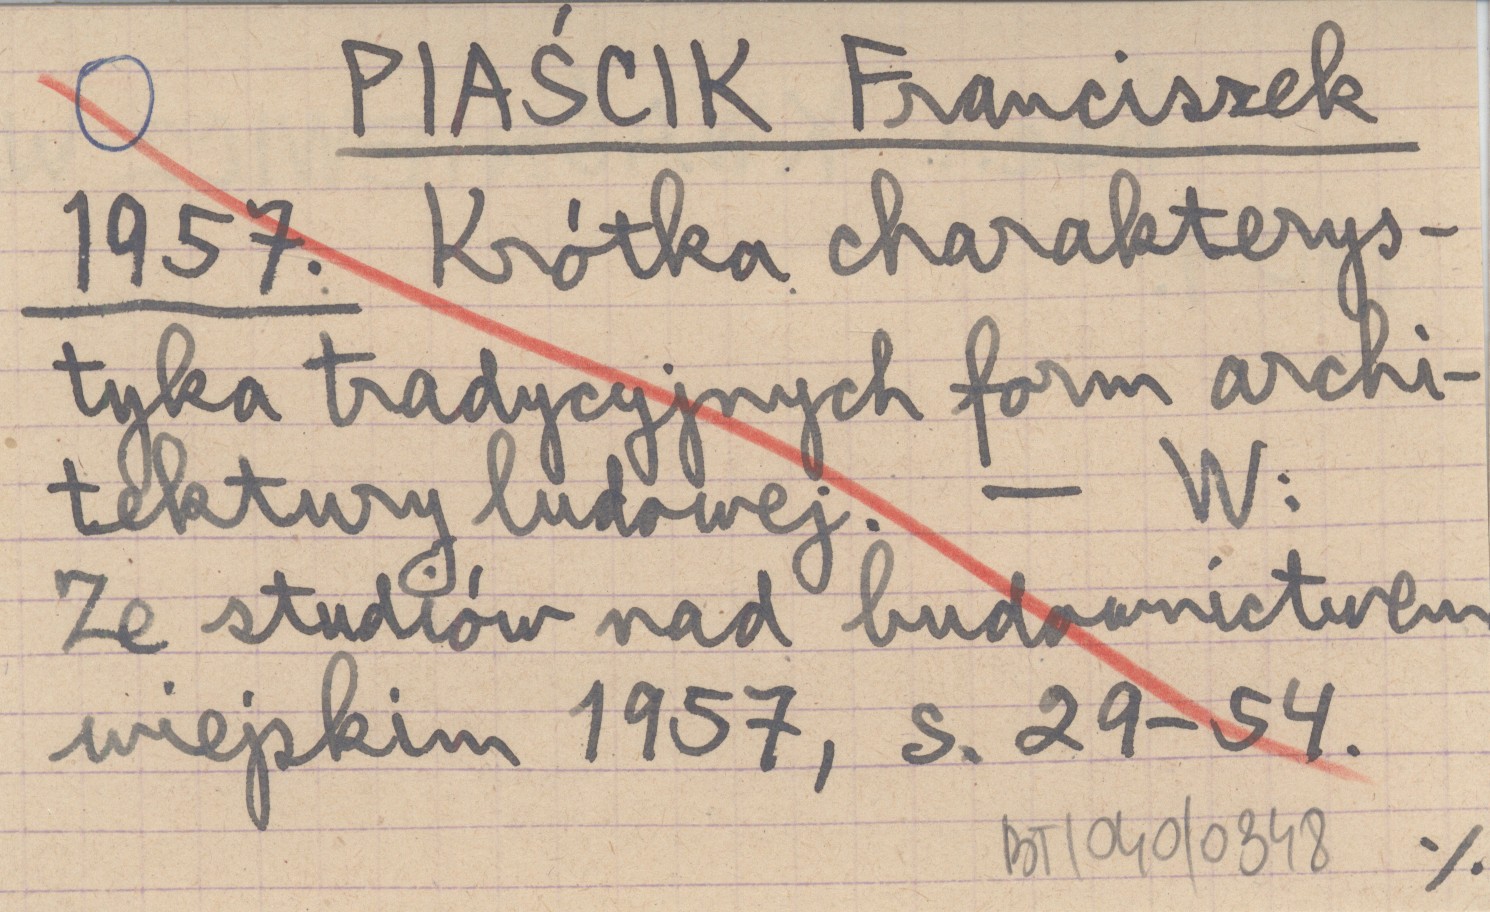 PIAŚCIK Franciszek
1957. Krótka charakterys-
tyka tradycyjnych form archi-
tektury ludowej. — W:
Ze studiów nad budownictwem
wiejskim 1957, s. 29-54.
BT/040/0348 ./.